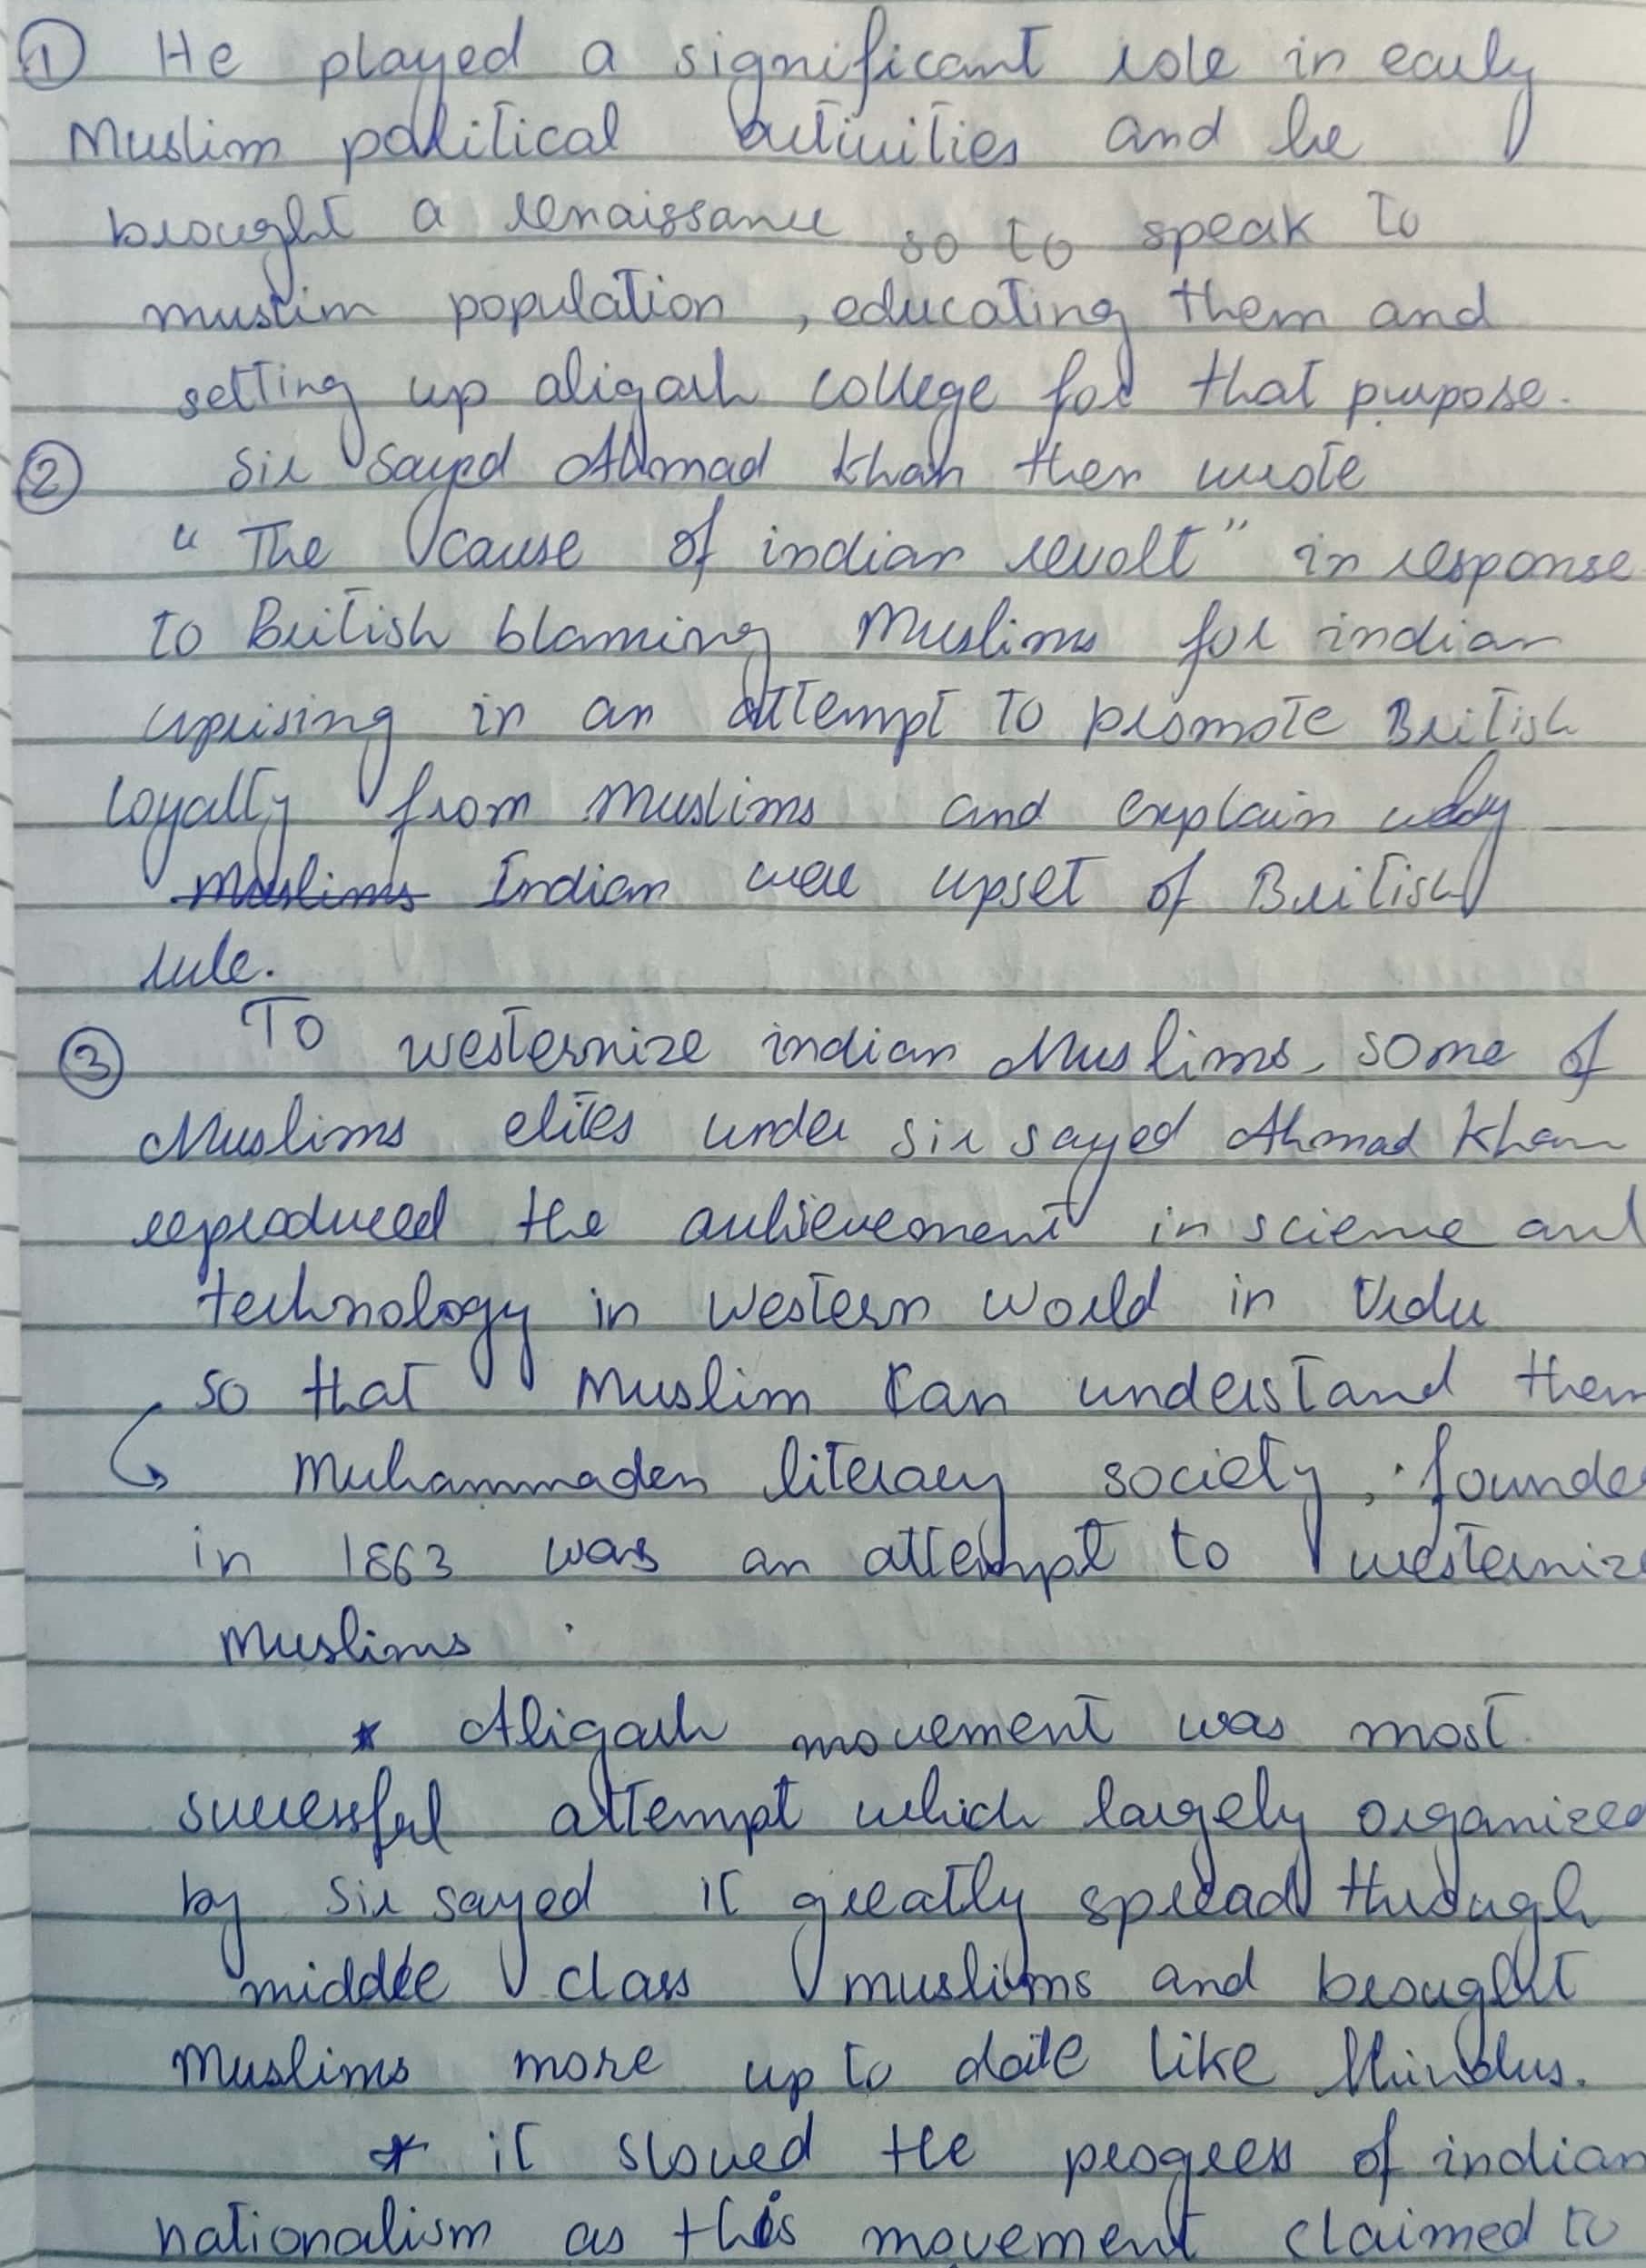 ① He played a significant role in early
Muslim political activities and he
brought a renaissance so to speak to
muslim population , educating them and
setting up aligarh college for that purpose.
② Sir Sayed Ahmad Khan then wrote
" The cause of indian revolt " in response
to British blaming Muslims for indian
uprising in an attempt to promote British
loyalty from Muslims and explain why
Muslims Indian were upset of British
rule.
③ To westernize indian Muslims, some of
Muslims elites under sir sayed Ahmad Khan
reproduced the achievement in science and
technology in western world in Urdu
so that Muslim can understand them
Muhammaden literary society , founded
in 1863 was an attempt to westernize
Muslims .
* Aligarh movement was most
successful attempt which largely organized
by Sir sayed it greatly spread through
middle class muslims and brought
Muslims more up to date like Hindus.
* it slowed the progress of indian
nationalism as this movement claimed to